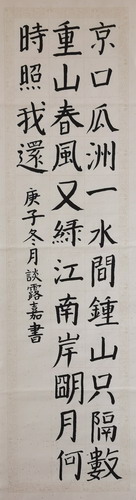 京口瓜洲一水間鍾山只隔數
重山春風又緑江南岸朙月何
時照我還
庚子冬月談露嘉書